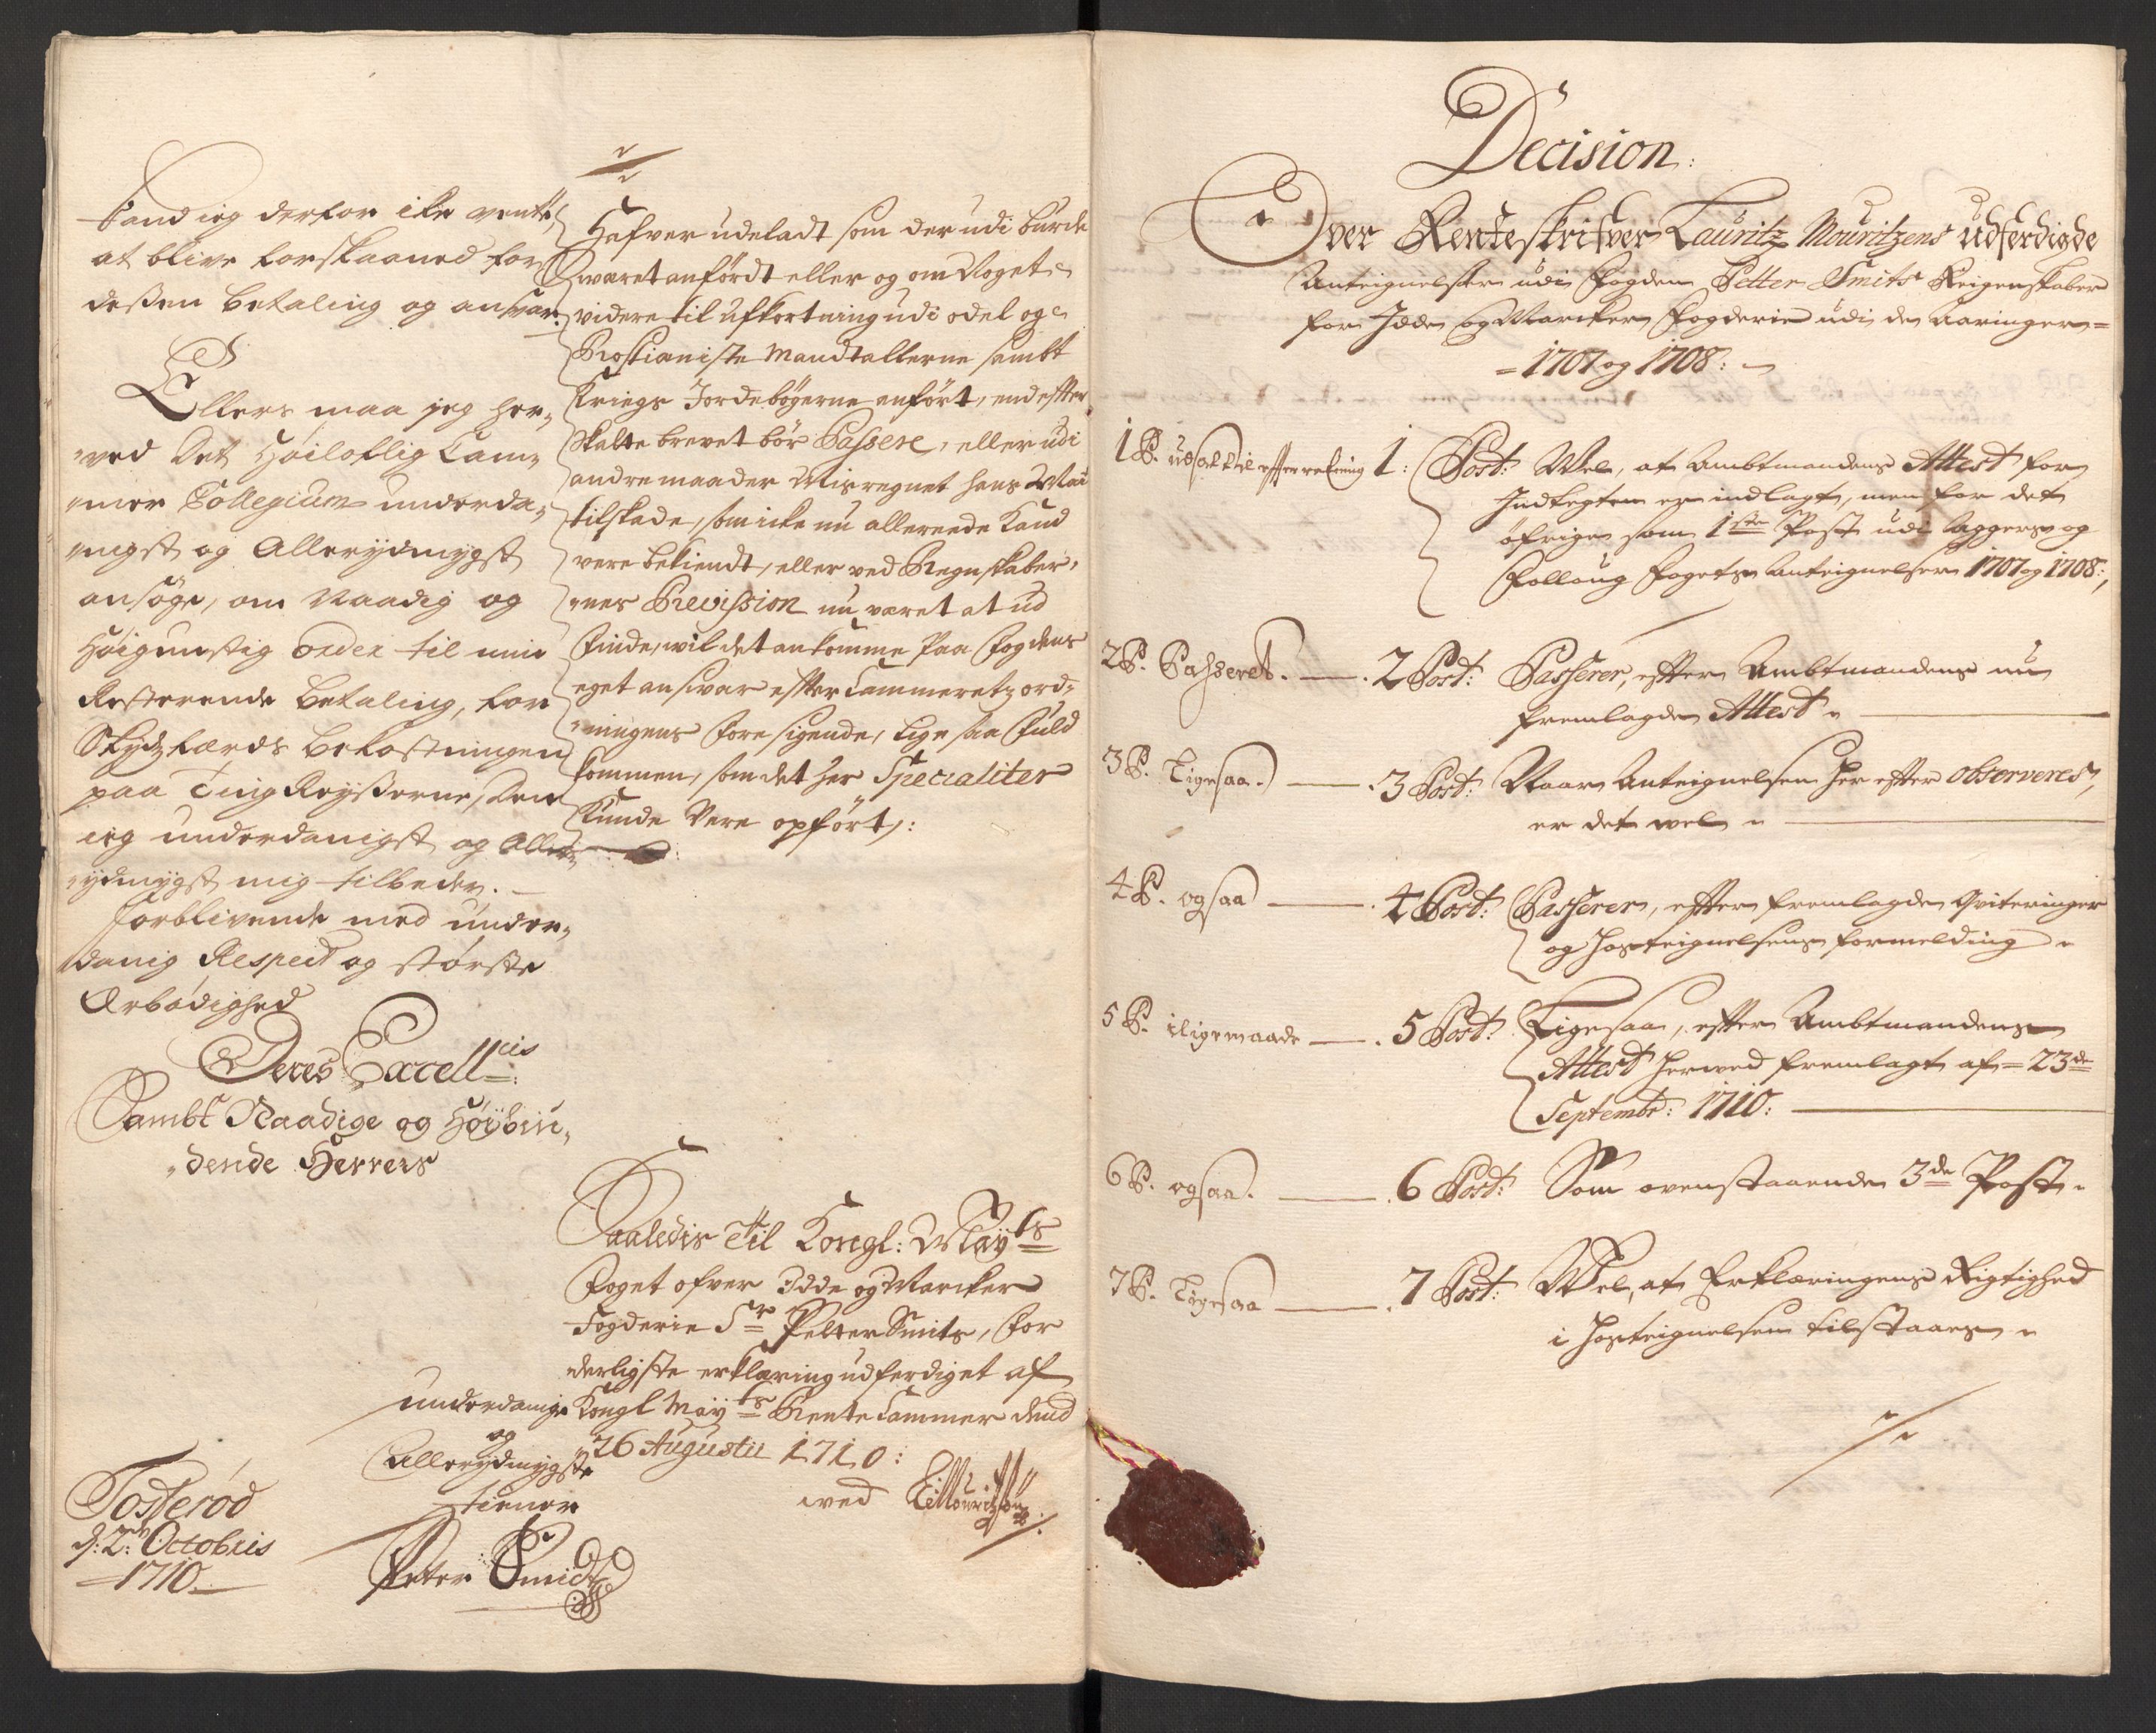 kand ieg derfor icke vente,
at blive forskaaned for
dessen betaling og ansvar.
Ellers maa jeg her„
„ved Det Høiloflig Cam„
„mer Collegium underda„
„nigst og Allerydmygst
ansøge, om Naadig og
Høigunstig Order til min
Resterende betaling, for
Skydzfærds bekostningen
paa Ting Reysserne, den
ieg underdanigst og Aller„
„ydmygst mig tilbeder.
forblivende med under„
danig Respect og største
Ærbødighed
Deres Excell:cis
Sambt Naadige og Høybiu„
„dende Herrers
underdanige
og
Allerydmygste
tiener
Peter Smidt
Tosterød
d: 2: Octobris
1710
Hafver udeladt som der udi burde
været anfördt eller og om Noget
videre til afkortning udi odel og
Prostianiste Mandtallerne sambt
Kriegs Jordebøgerne anført, end efter
Skatte brevet bör Passere, eller udi
andre maader Misregnet hans May
tilskade, som icke nu allereede kand
vere bekiendt, eller ved Regnskaber„
„nes Revission nu været at ud
finde, vil det ankomme paa Fogdens
eget answar efter Cammeretz ord„
„ningens foresigende, lige saa fuld
kommen, som det her Specialiter
kunde Vere opfört:
Saaledis Til Kongl: Mayts
Foget ofver Idde og Marcker
Fogderie Sr Petter Smits, for
derligste erklæring udferdiget af
Kongl Mayts Rente Cammer dend
26 Augustii 1710:
ved LMouritzön
Decision:
Over Renteskrifver Lauritz Mouritzens udferdigde
Anteignelser udi Fogden Petter Smits Reigenskaber
for Idde og Marcker Fogderie udi de Aaringer
1707 og 1708:
1 P. udsatt til efterretning 1: Post: Vel, at Ambtmandens Attest for
Indtegten er indlagt, men for det
öfrige som 1ste Post udi Aggers og
Folloug fogets Anteignelser 1707 og 1708:,
2 P. Passeret. 2 Post: Passerer, efter Ambtmandens nu
fremlagde Attest
3 P. Ligesaa. 3 Post: Naar Anteignelsen her efter observeres,
er det vel
4 P. ogsaa 4 Post: Passerer, efter fremlagde Qviteringer
og Hosteignelsens formelding
5 P. iligemaade 5 Post: Ligesaa, efter Ambtmandens
Attest herved fremlagt af 23de
Septembr: 1710:
6 P. ogsaa. 6 Post: Som ovenstaaende 3de Post.
7 P. Ligesaa 7 Post: Vel, at Erklæringens Rigtighed
i Hosteignelsen tilstaaes